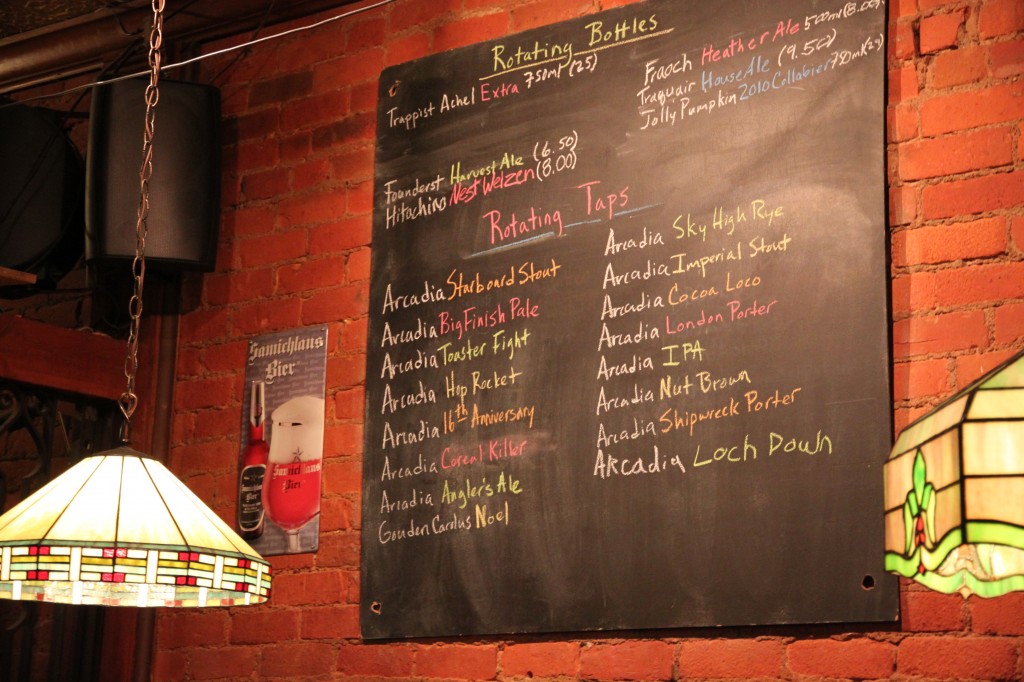 Rotating Bottles
Trappist Achel Extra 750ml (25)
Fraoch Heather Ale 500ml (8.00)
Traquair House Ale (9.50)
Jolly Pumpkin 2010 Collabier 750ml
Founderst Harvest Ale (6.50)
Hitachino Nest Weizen (8.00)
Rotating Taps
Arcadia Starboard Stout
Arcadia Big Finish Pale
Arcadia Toaster Fight
Arcadia Hop Rocket
Arcadia 16th Anniversary
Arcadia Cereal Killer
Arcadia Angler's Ale
Gouden Carolus Noel
Arcadia Sky High Rye
Arcadia Imperial Stout
Arcadia Cocoa Loco
Arcadia London Porter
Arcadia IPA
Arcadia Nut Brown
Arcadia Shipwreck Porter
Arcadia Loch Down
Samichlaus
Bier
Samichlaus
Bier